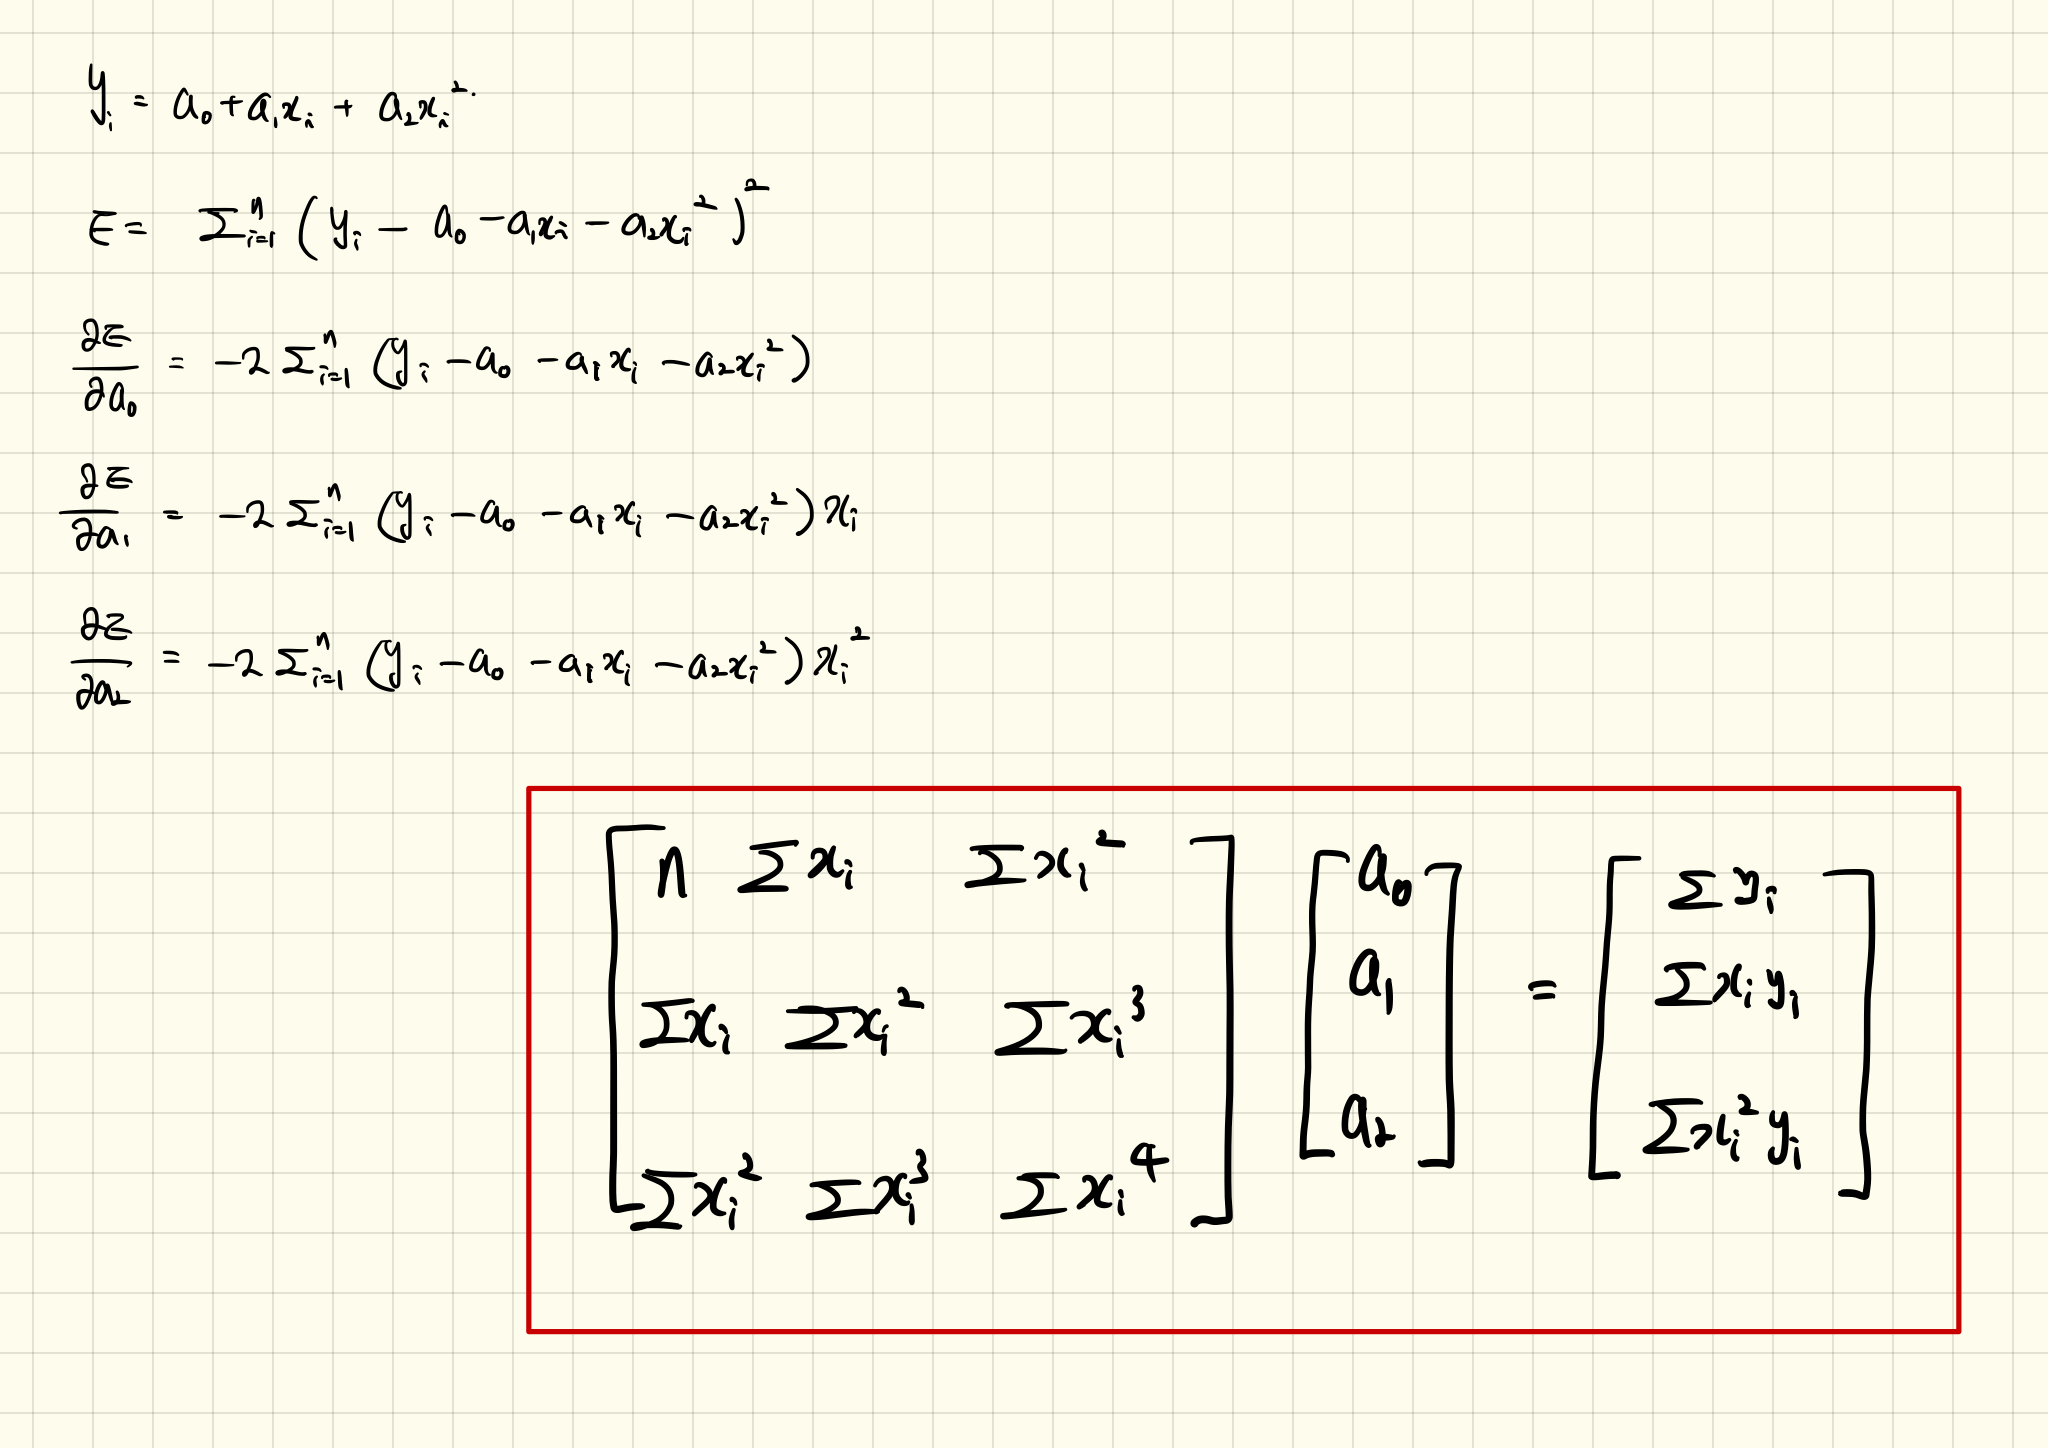 yᵢ = a₀ + a₁xᵢ + a₂xᵢ².
E = Σᵢ₌₁ⁿ (yᵢ − a₀ − a₁xᵢ − a₂xᵢ²)²
∂E/∂a₀ = −2 Σᵢ₌₁ⁿ (yᵢ − a₀ − a₁xᵢ − a₂xᵢ²)
∂E/∂a₁ = −2 Σᵢ₌₁ⁿ (yᵢ − a₀ − a₁xᵢ − a₂xᵢ²) xᵢ
∂E/∂a₂ = −2 Σᵢ₌₁ⁿ (yᵢ − a₀ − a₁xᵢ − a₂xᵢ²) xᵢ²
[ n Σxᵢ Σxᵢ² ] [ a₀ ] [ Σyᵢ ]
[ Σxᵢ Σxᵢ² Σxᵢ³ ] [ a₁ ] = [ Σxᵢyᵢ ]
[ Σxᵢ² Σxᵢ³ Σxᵢ⁴ ] [ a₂ ] [ Σxᵢ²yᵢ ]